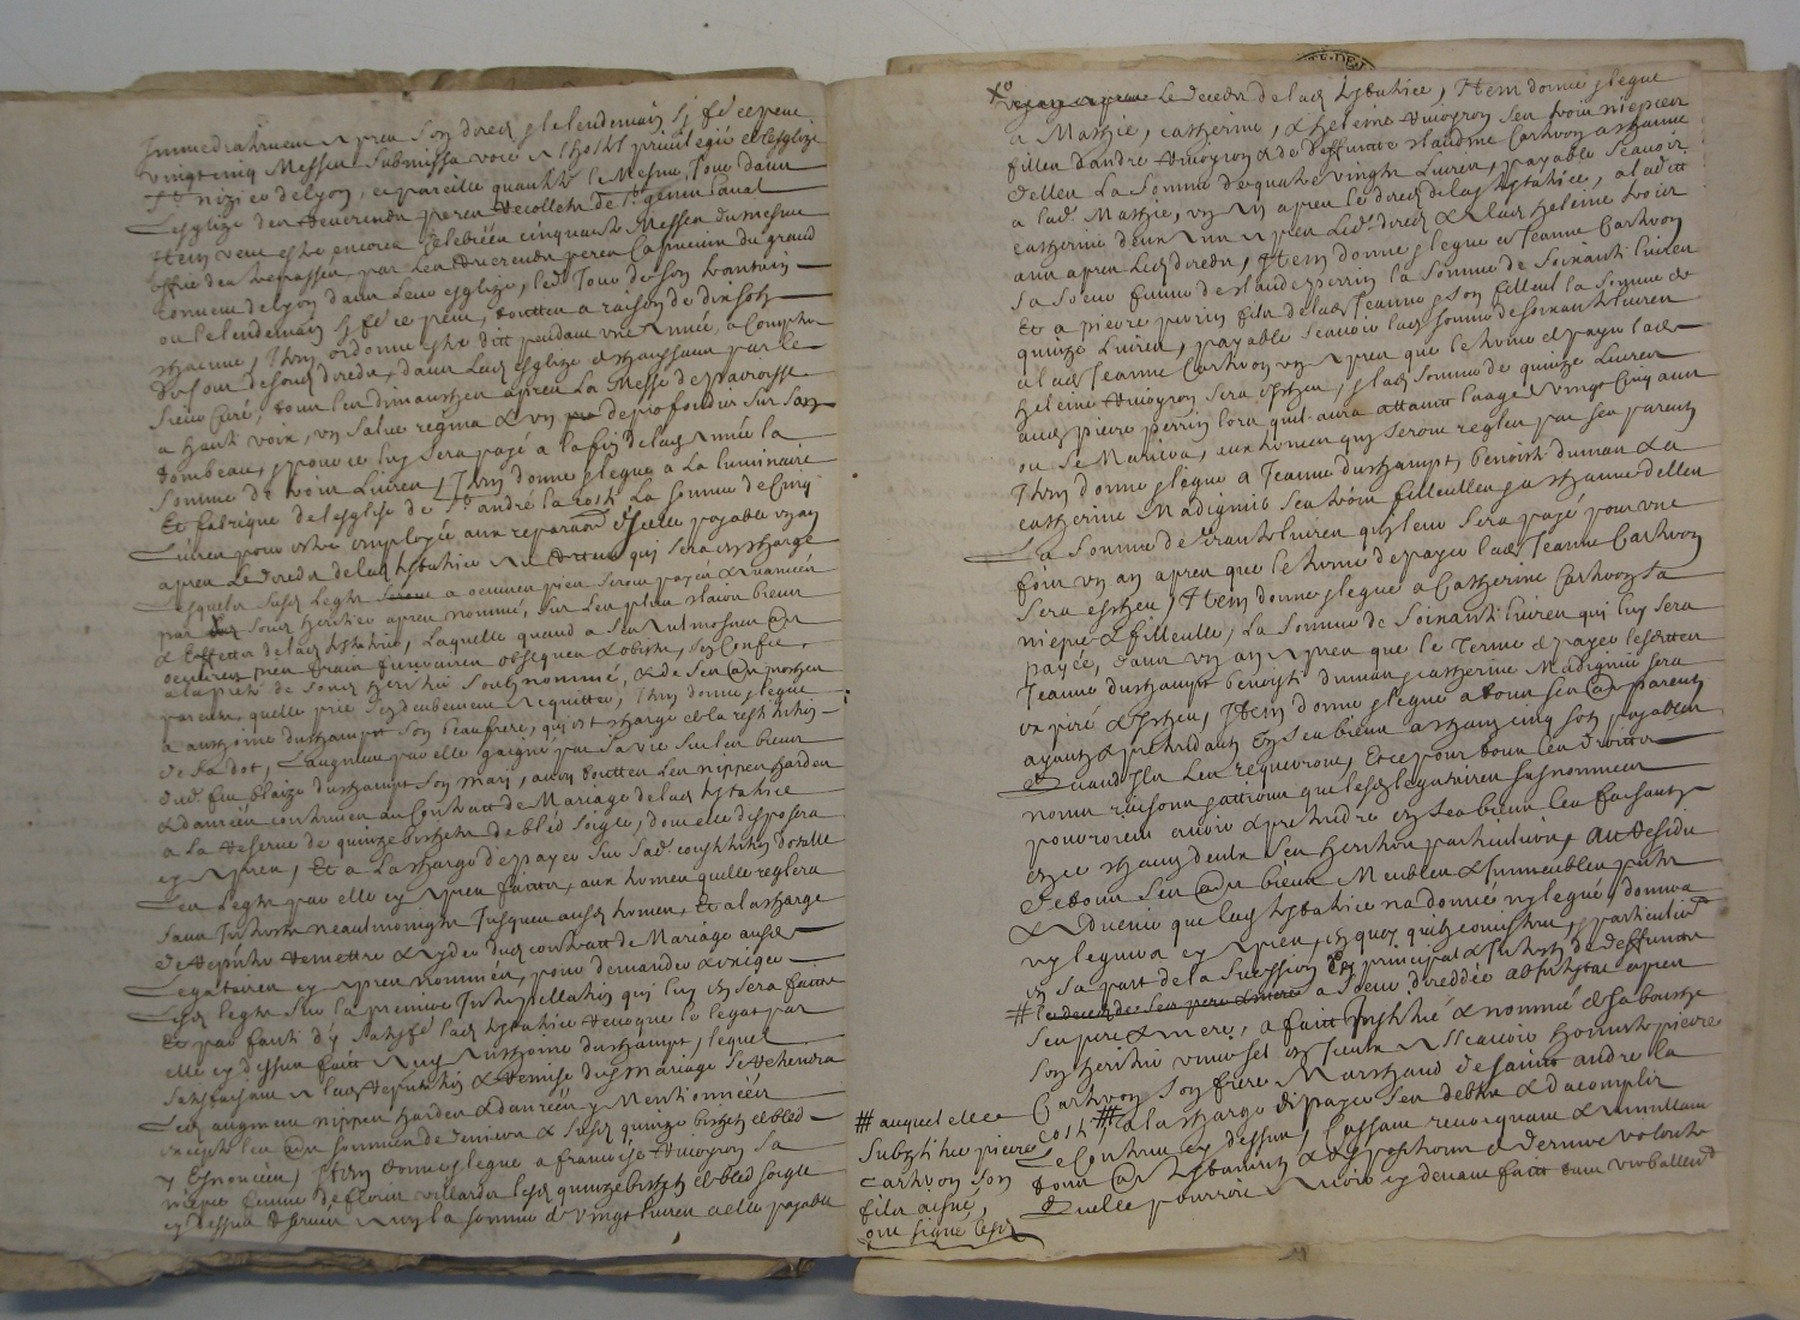 Immediatement apres son deces et lelendemain sy fé ce peut
vingt cinq Messes submissa voce a lhostel privilegié de lesglize
St nizier de lyon, et pareille quantité le Mesme Jour dans
Lesglize des Reverends peres Recollets de St genis Laval
Item veut estre encores celebrées cinquante Messes du mesme
office des trepassez par les Reverends peres Capucins du grand
Convent de lyon dans leur esglize, led Jour de son
ou lelendemain sy fé ce peut, touttes a raison de dix solz
chacune, Item ordonne estre ditt pendant une année, a Compter
du Jour de soud deceds, dans lad esglize de par le
Sieur Curé, tous les dimanches apres la Messe de parroisse
a haute voix, un salve regina et un de profondis sur son
tombeau, et pour ce luy sera payé a la fin de lad année la
somme de trois Livres, Item donne et legue a la luminaire
Et fabrique de lesglise de St andré la coste la somme de Cinq
Livres pour estre employée aux reparaons dicelle payable un an
apres le deceds de lad testatrice au qui sera en charge
Lesquels susd legts a oeuvres pies seront payés et avancés
par sond heritier apres nommé, sur les plus clairs biens
et Effetts de lad testatrice, Laquelle quand a ses aulmosnes
oeuvres pies frais funeraires obseques et obits, sen Confie
a la pieté de sond heritié soubz nommé, et de ses proches
parents, quelle prie sen deubement acquitter, Item donne et legue
a anthoine duchampt son beaufrere, qui est chargé de la restitution
de sa dot, Laugment par elle gaigné par sa vie sur les biens
dud feu blaize duchampt son mary, avec touttes les nippes hardes
et danrées contenues au Contratt de Mariage de lad testatrice
a la reserve de quinze bichets de bled soigle, dont elle disposera
cy apres, Et a la charge de payer sur sad constitution dotalle
Les legts par elle cy apres faitts, aux termes quelle reglera
sans Interests neautmoingts Jusques ausd termes, Et a la charge
de
Legataires cy apres nommés, pour demander et exiger
Lesd legts sur la premiere Interpellation qui luy en sera faitte
Et par faute dy satisfe lad testatrice revoque le legat par
elle cy dessus faitt aud anthoine duchampt, lequel
satisfaisant a lad et remise dud mariage se retiendra
Led augment nippes hardes et danrées y Mentionnées
excepté les sommes de deniers et susd quinze bichets de bled
y Enoncées, Item donne et legue a francoise sa
niepce femme de fleury villard lesd quinze bichetz de bled soigle
cy dessus reservés avec la somme de vingt livres a elle payable
le deceds de lad testatrice, Item donne et legue
a Mathie, catherine, et heleine ses trois niepces
filles dandré et de deffuncte claudine Carteron a chacune
delles La somme de quatre vingts Livres, payable scavoir
a lad Mathie, un an apres le deces de lad testatrice, a ladtt
catherine deux ans apres led deces et a lad heleine trois
ans apres led deceds, Item donne et legue a Jeanne Carteron
sa soeur femme de claude perrin la somme de soixante livres
Et a pierre perrin fils de lad Jeanne et son filleul la somme de
quinze Livres, payable scavoir lad somme de soixante livres
a lad Jeanne Carteron un an apres que le terme de payer lad
heleine sera escheu, et lad somme de quinze Livres
aud pierre perrin lors quil aura attaintt laage de vingt Cinq ans
ou se Mariera, aux termes quy seront reglez par ses parents
Item donne et legue a Jeanne duchampt, benoiste dumas et a
catherine Madignié ses trois filleulles a chacune delles
La somme de trante livres quy leur sera payé pour une
fois un an apres que le terme de payer lad Jeanne Carteron
sera escheu, Item donne et legue a Catherine Carteron sa
niepce et filleulle, La somme de soixante livres qui luy sera
payée, dans un an apres que le Terme de payer lesdittes
Jeanne duchampt benoiste dumas et catherine Madignié sera
expiré et escheu, Item donne et legue a tous ses parents
ayants et pretendants en ses biens a chacung cinq solz payables
Quand Ilz Les requerront, Et ce pour tous les droitts
noms raisons et actions que lesd legataires susnommés
pourroient avoir et pretendre en ses biens les faisants
en ce chacung deulx ses heritiers particuliers, Au Residu
De tous ses biens Meubles et Immeubles
et advenir que lad testatrice na donné ny legué, donnera
ny leguera cy apres, en quoy quilz consistent, et particuliert
en sa part de la sucession en principal et Interestz de deffuncte
# a soeur, ab intestat apres
ses pere et mere, a faitt Institué et nommé de sa bouche
son heritier universel en Iceulx a scavoir honneste pierre
Carteron son frere Marchand de saint andré la
coste, # a la charge de payer ses debtes et dacomplir
Le Contenu cy dessus, Cassant revocquant et annullant
tous testaments et dispositions de derniere volonté
Quelle pourroit avoir cy devant faitt tant verballemt
# auquel elle
substitue pierre
carteron son
fils aisné,
ont signé lesd